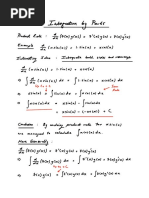 Integration by Parts
Product Rule : d/dx (f(x)g(x)) = f'(x)g(x) + f(x)g'(x)
Example d/dx (x sin(x)) = sin(x) + x cos(x)
Interesting Idea : Integrate both sides and rearrange
d/dx (x sin(x)) = sin(x) + x cos(x)
⇒ ∫ d/dx (x sin(x)) dx = ∫ sin(x) dx + ∫ x cos(x) dx
Up to + C
⇒ x sin(x) = ∫ sin(x) dx + ∫ x cos(x) dx
⇒ ∫ x cos(x) dx = x sin(x) - ∫ sin(x) dx
= x sin(x) + cos(x) + C
Conclusion : By reversing product rule for x sin(x)
we managed to calculate ∫ x cos(x) dx
More Generally :
d/dx (f(x)g(x)) = f'(x)g(x) + f(x)g'(x)
⇒ ∫ d/dx (f(x)g(x)) dx = ∫ f'(x)g(x) dx + ∫ f(x)g'(x) dx
Up to + C